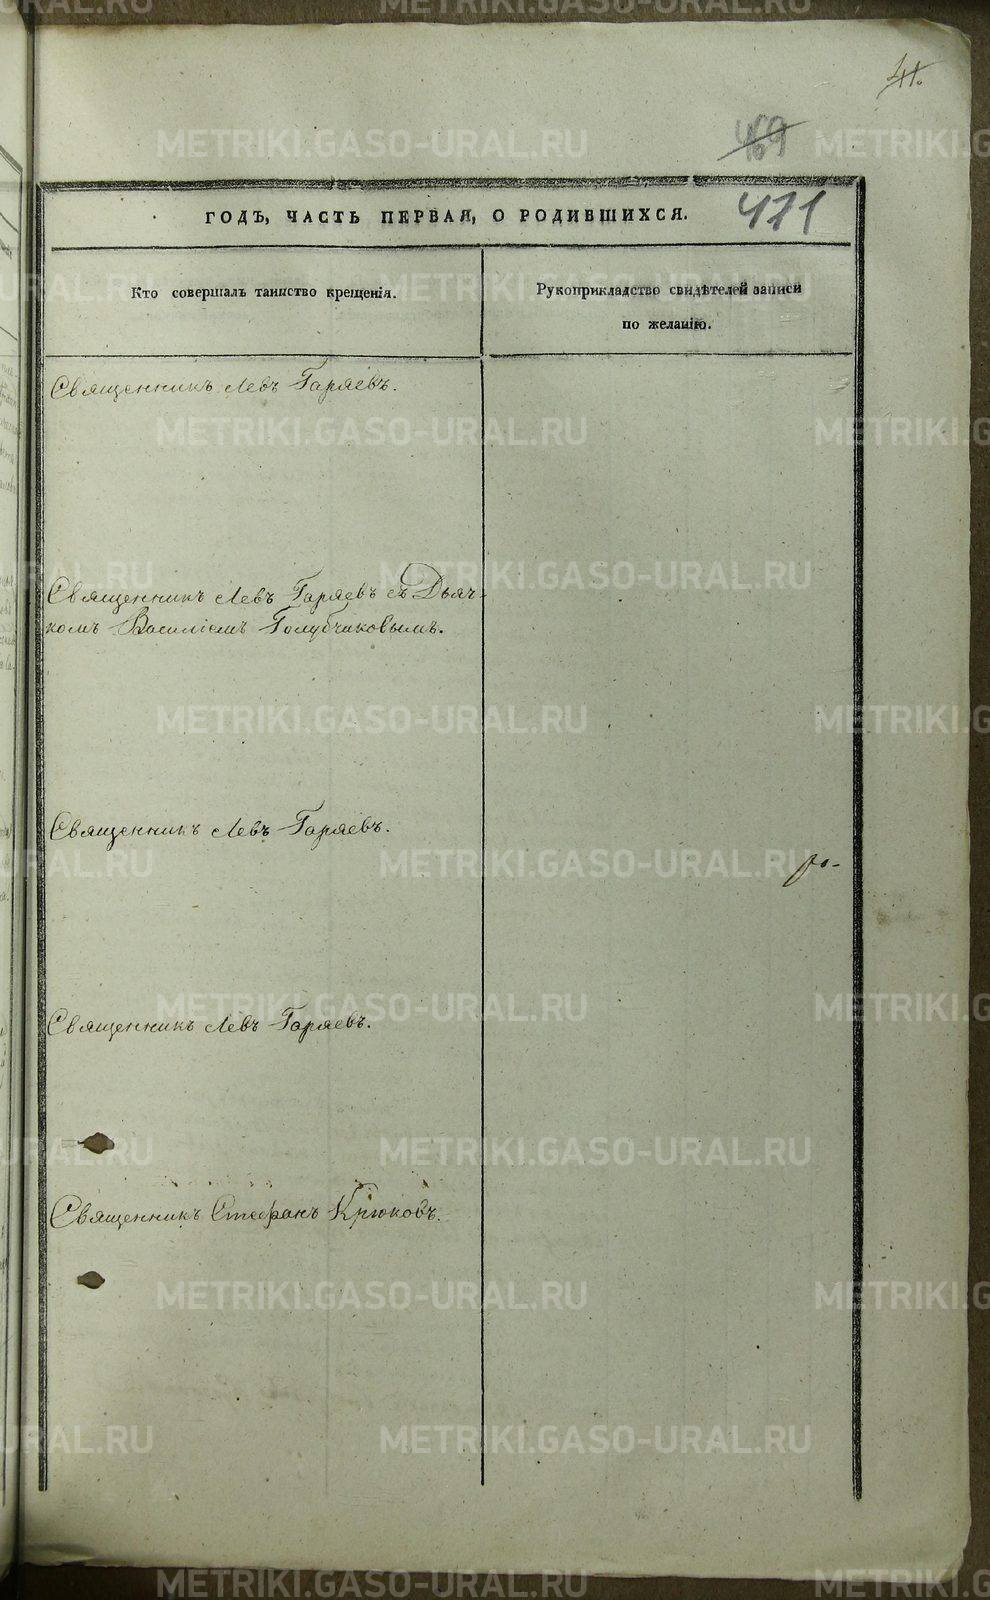 41.
469
471
ГОДЪ, ЧАСТЬ ПЕРВАЯ, О РОДИВШИХСЯ.
Кто совершалъ таинство крещенія.
Рукоприкладство свидѣтелей записи
по желанію.
Священникъ Левъ Гаряевъ.
Священникъ Левъ Гаряевъ съ Дьяч-
комъ Василіемъ Голубчиковымъ.
Священникъ Левъ Гаряевъ.
ро-
Священникъ Левъ Гаряевъ.
Священникъ Стефанъ Крюковъ.
METRIKI.GASO-URAL.RU